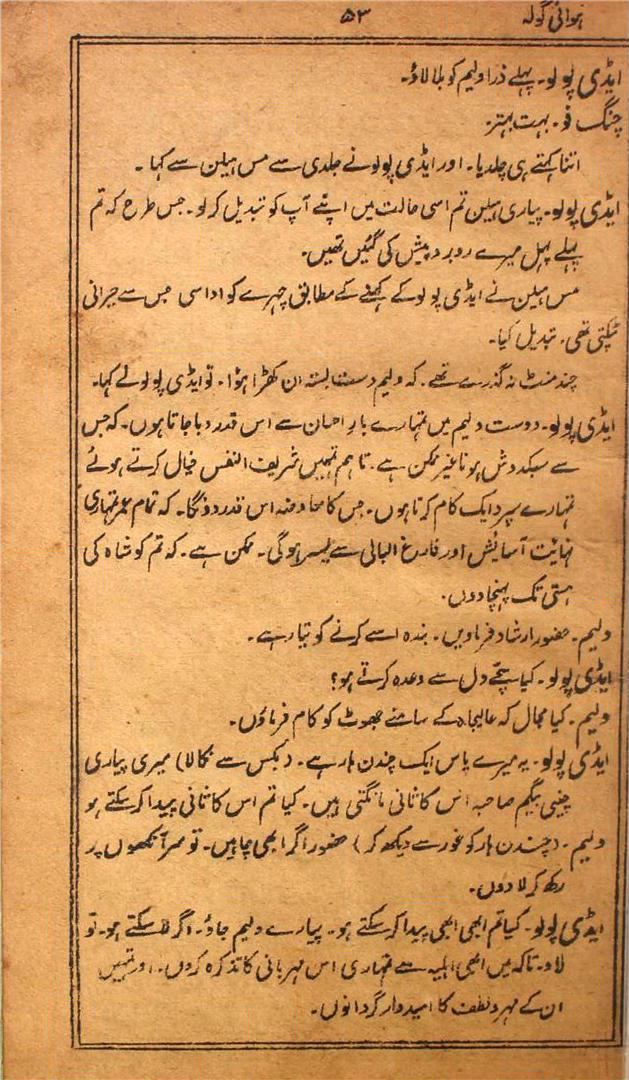 ہوائی گولہ ۵۳
ایڈی پولو۔ پہلے ذرا ولیم کو بلا لاؤ۔
چنگ فو۔ بہت بہتر۔
اتنا کہتے ہی چلدیا۔ اور ایڈی پولو نے جلدی سے مس ہیلن سے کہا ۔
ایڈی پولو۔ پیاری ہیلن تم اسی حالت میں اپنے آپ کو تبدیل کر لو۔ جس طرح کہ تم
پہلے پہل میرے روبرو پیش کی گئیں تھیں۔
مس ہیلن نے ایڈی پولو کے کہنے کے مطابق چہرے کو اداسی جس سے حیرانی
ٹپکتی تھی۔ تبدیل کیا۔
چند منٹ نہ گذرے تھے۔ کہ ولیم دست بستہ ان کھڑا ہؤا۔ تو ایڈی پولو نے کہا۔
ایڈی پولو۔ دوست ولیم میں تمہارے بار احسان سے اس قدر دبا جاتا ہوں۔ کہ جس
سے سبکدوش ہونا غیر ممکن ہے۔ تاہم تمہیں شریف النفس خیال کرتے ہوئے
تمہارے سپرد ایک کام کرتا ہوں۔ جس کا معاوضہ اس قدر دونگا۔ کہ تمام عمر تمہاری
نہائت آسائش اور فارغ البالی سے بسر ہوگی۔ ممکن ہے۔ کہ تم کو شاہ کی
ہستی تک پہنچا دوں۔
ولیم۔ حضور ارشاد فرماویں۔ بندہ اسے کرنے کو تیار ہے۔
ایڈی پولو۔ کیا سچے دل سے وعدہ کرتے ہو؟
ولیم۔ کیا مجال کہ عالیجاہ کے سامنے جھوٹ کو کام فرماؤں۔
ایڈی پولو۔ یہ میرے پاس ایک چندن ہار ہے۔ (بکس سے نکالا) میری پیاری
چینی بیگم صاحبہ اس کا ثانی مانگتی ہیں۔ کیا تم اس کا ثانی پیدا کر سکتے ہو
ولیم۔ (چندن ہار کو غور سے دیکھ کر) حضور اگر ابھی چاہیں۔ تو سر آنکھوں پر
رکھ کر لا دوں۔
ایڈی پولو۔ کیا تم ابھی ابھی پیدا کر سکتے ہو۔ پیارے ولیم جاؤ۔ اگر لا سکتے ہو۔ تو
لاو۔ تاکہ میں ابھی اہلیہ سے تمہاری اس مہربانی کا تذکرہ کروں۔ اور تمہیں
ان کے مہر و لطف کا امیدوار گردانوں۔